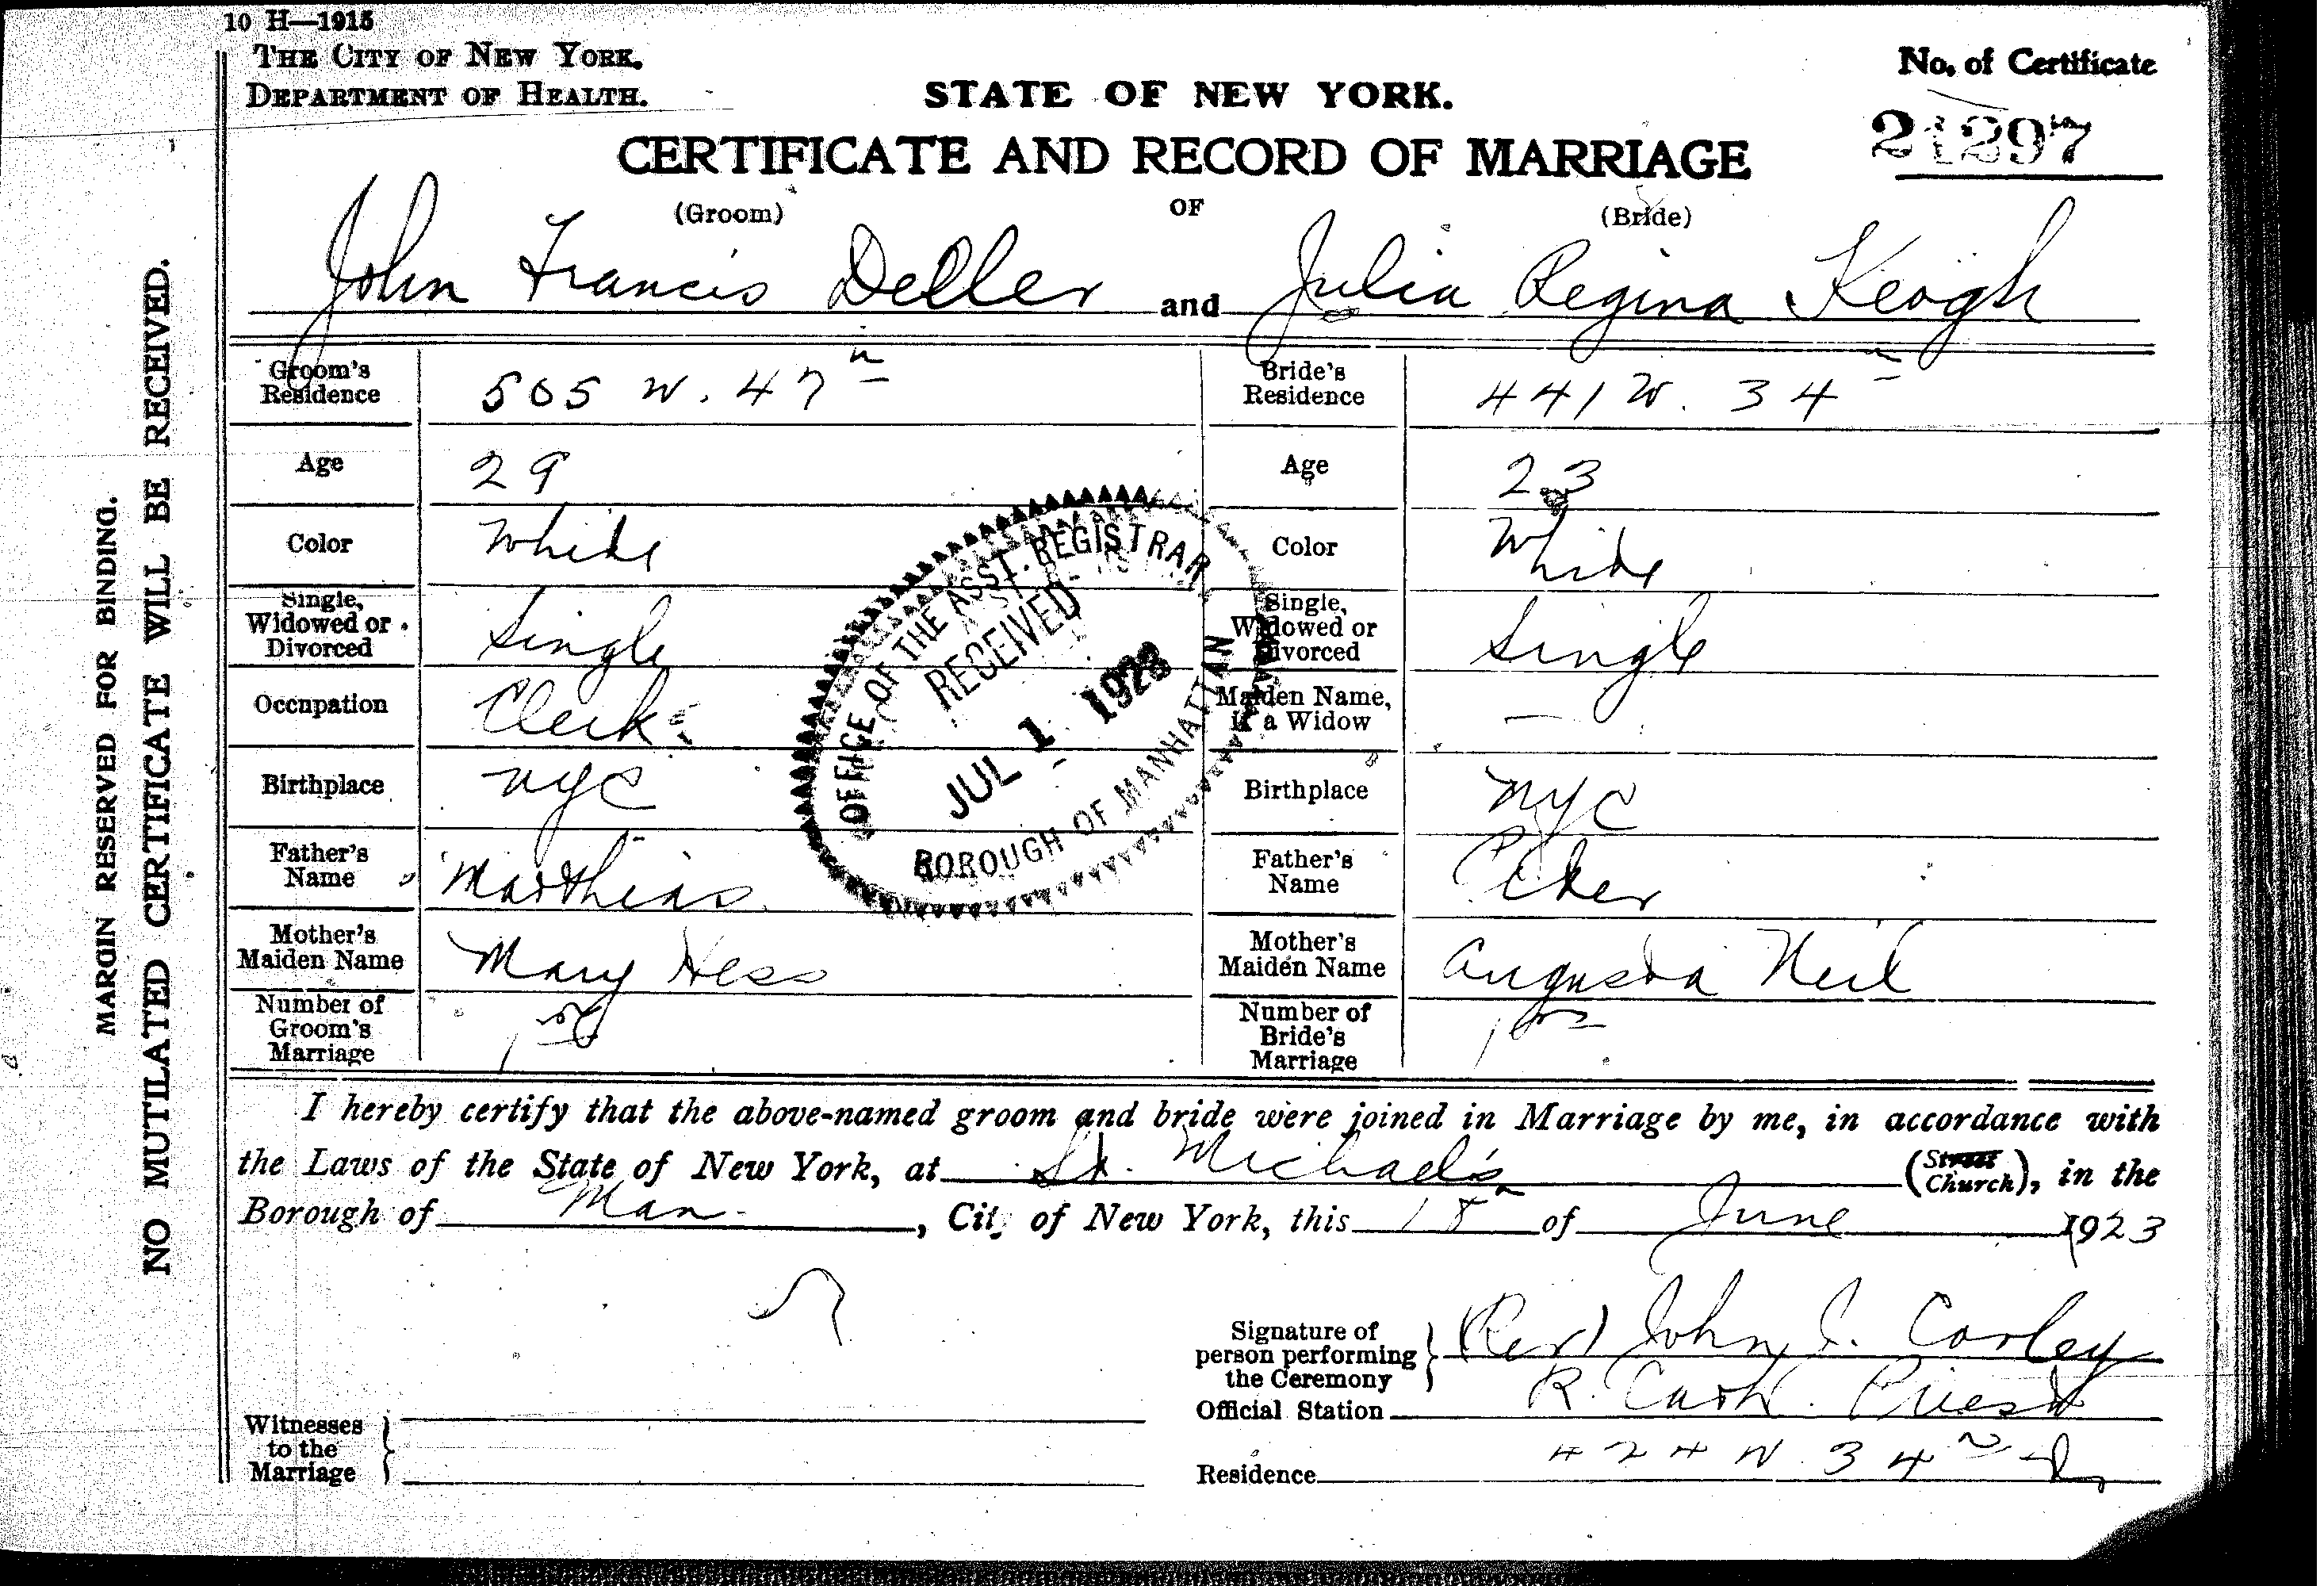 10 H—1915
THE CITY OF NEW YORK.
DEPARTMENT OF HEALTH.
STATE OF NEW YORK.
No. of Certificate
21297
CERTIFICATE AND RECORD OF MARRIAGE
(Groom) OF (Bride)
John Francis Deller and Julia Regina Keogh
Groom's Residence 505 W. 47th
Bride's Residence 441 W. 34th
Age 29
Age 23
Color White
Color White
Single, Widowed or Divorced Single
Single, Widowed or Divorced Single
Occupation Clerk
Maiden Name, if a Widow —
Birthplace NYC
Birthplace NYC
Father's Name Matthias
Father's Name Peter
Mother's Maiden Name Mary Hess
Mother's Maiden Name Augusta Neil
Number of Groom's Marriage 1st
Number of Bride's Marriage 1st
OFFICE OF THE ASST. REGISTRAR
RECEIVED
JUL 1 1923
BOROUGH OF MANHATTAN
I hereby certify that the above-named groom and bride were joined in Marriage by me, in accordance with
the Laws of the State of New York, at St. Michael's (Street Church), in the
Borough of Man. , City of New York, this 18th of June 1923
Signature of person performing the Ceremony (Rev) John J. Corley
Official Station R. Cath. Priest
Residence 424 W. 34th St
Witnesses to the Marriage
MARGIN RESERVED FOR BINDING.
NO MUTILATED CERTIFICATE WILL BE RECEIVED.